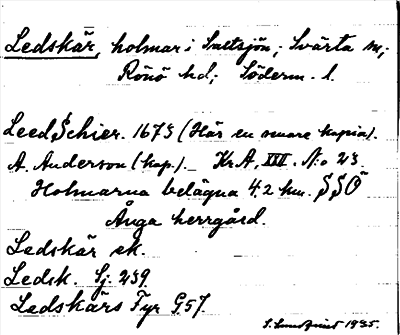 Ledskär, holmar i Saltsjön; Svärta sn;
Rönö hd; Söderm. l.
LeedSchier. 1673 (Här en senare kopia).
A. Anderson (kap.). KrA, XXX. N:o 23.
Holmarna belägna 4.2 km. SSO
Ånga herrgård.
Ledskär ek.
Ledsk. Sj. 239.
Ledskärs Fyr G57.
1935.